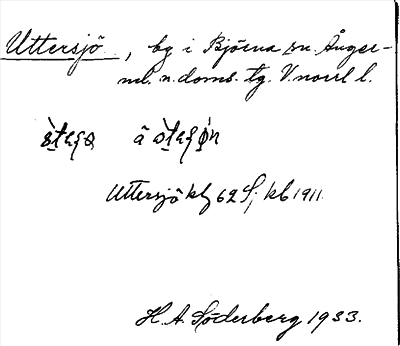 Uttersjö, by i Björna sn. Ånger-
ml. n. doms. tg. V.norrl l.
å
Uttersjö kbl 62 S; kb 1911.
H. A. Söderberg 1933.